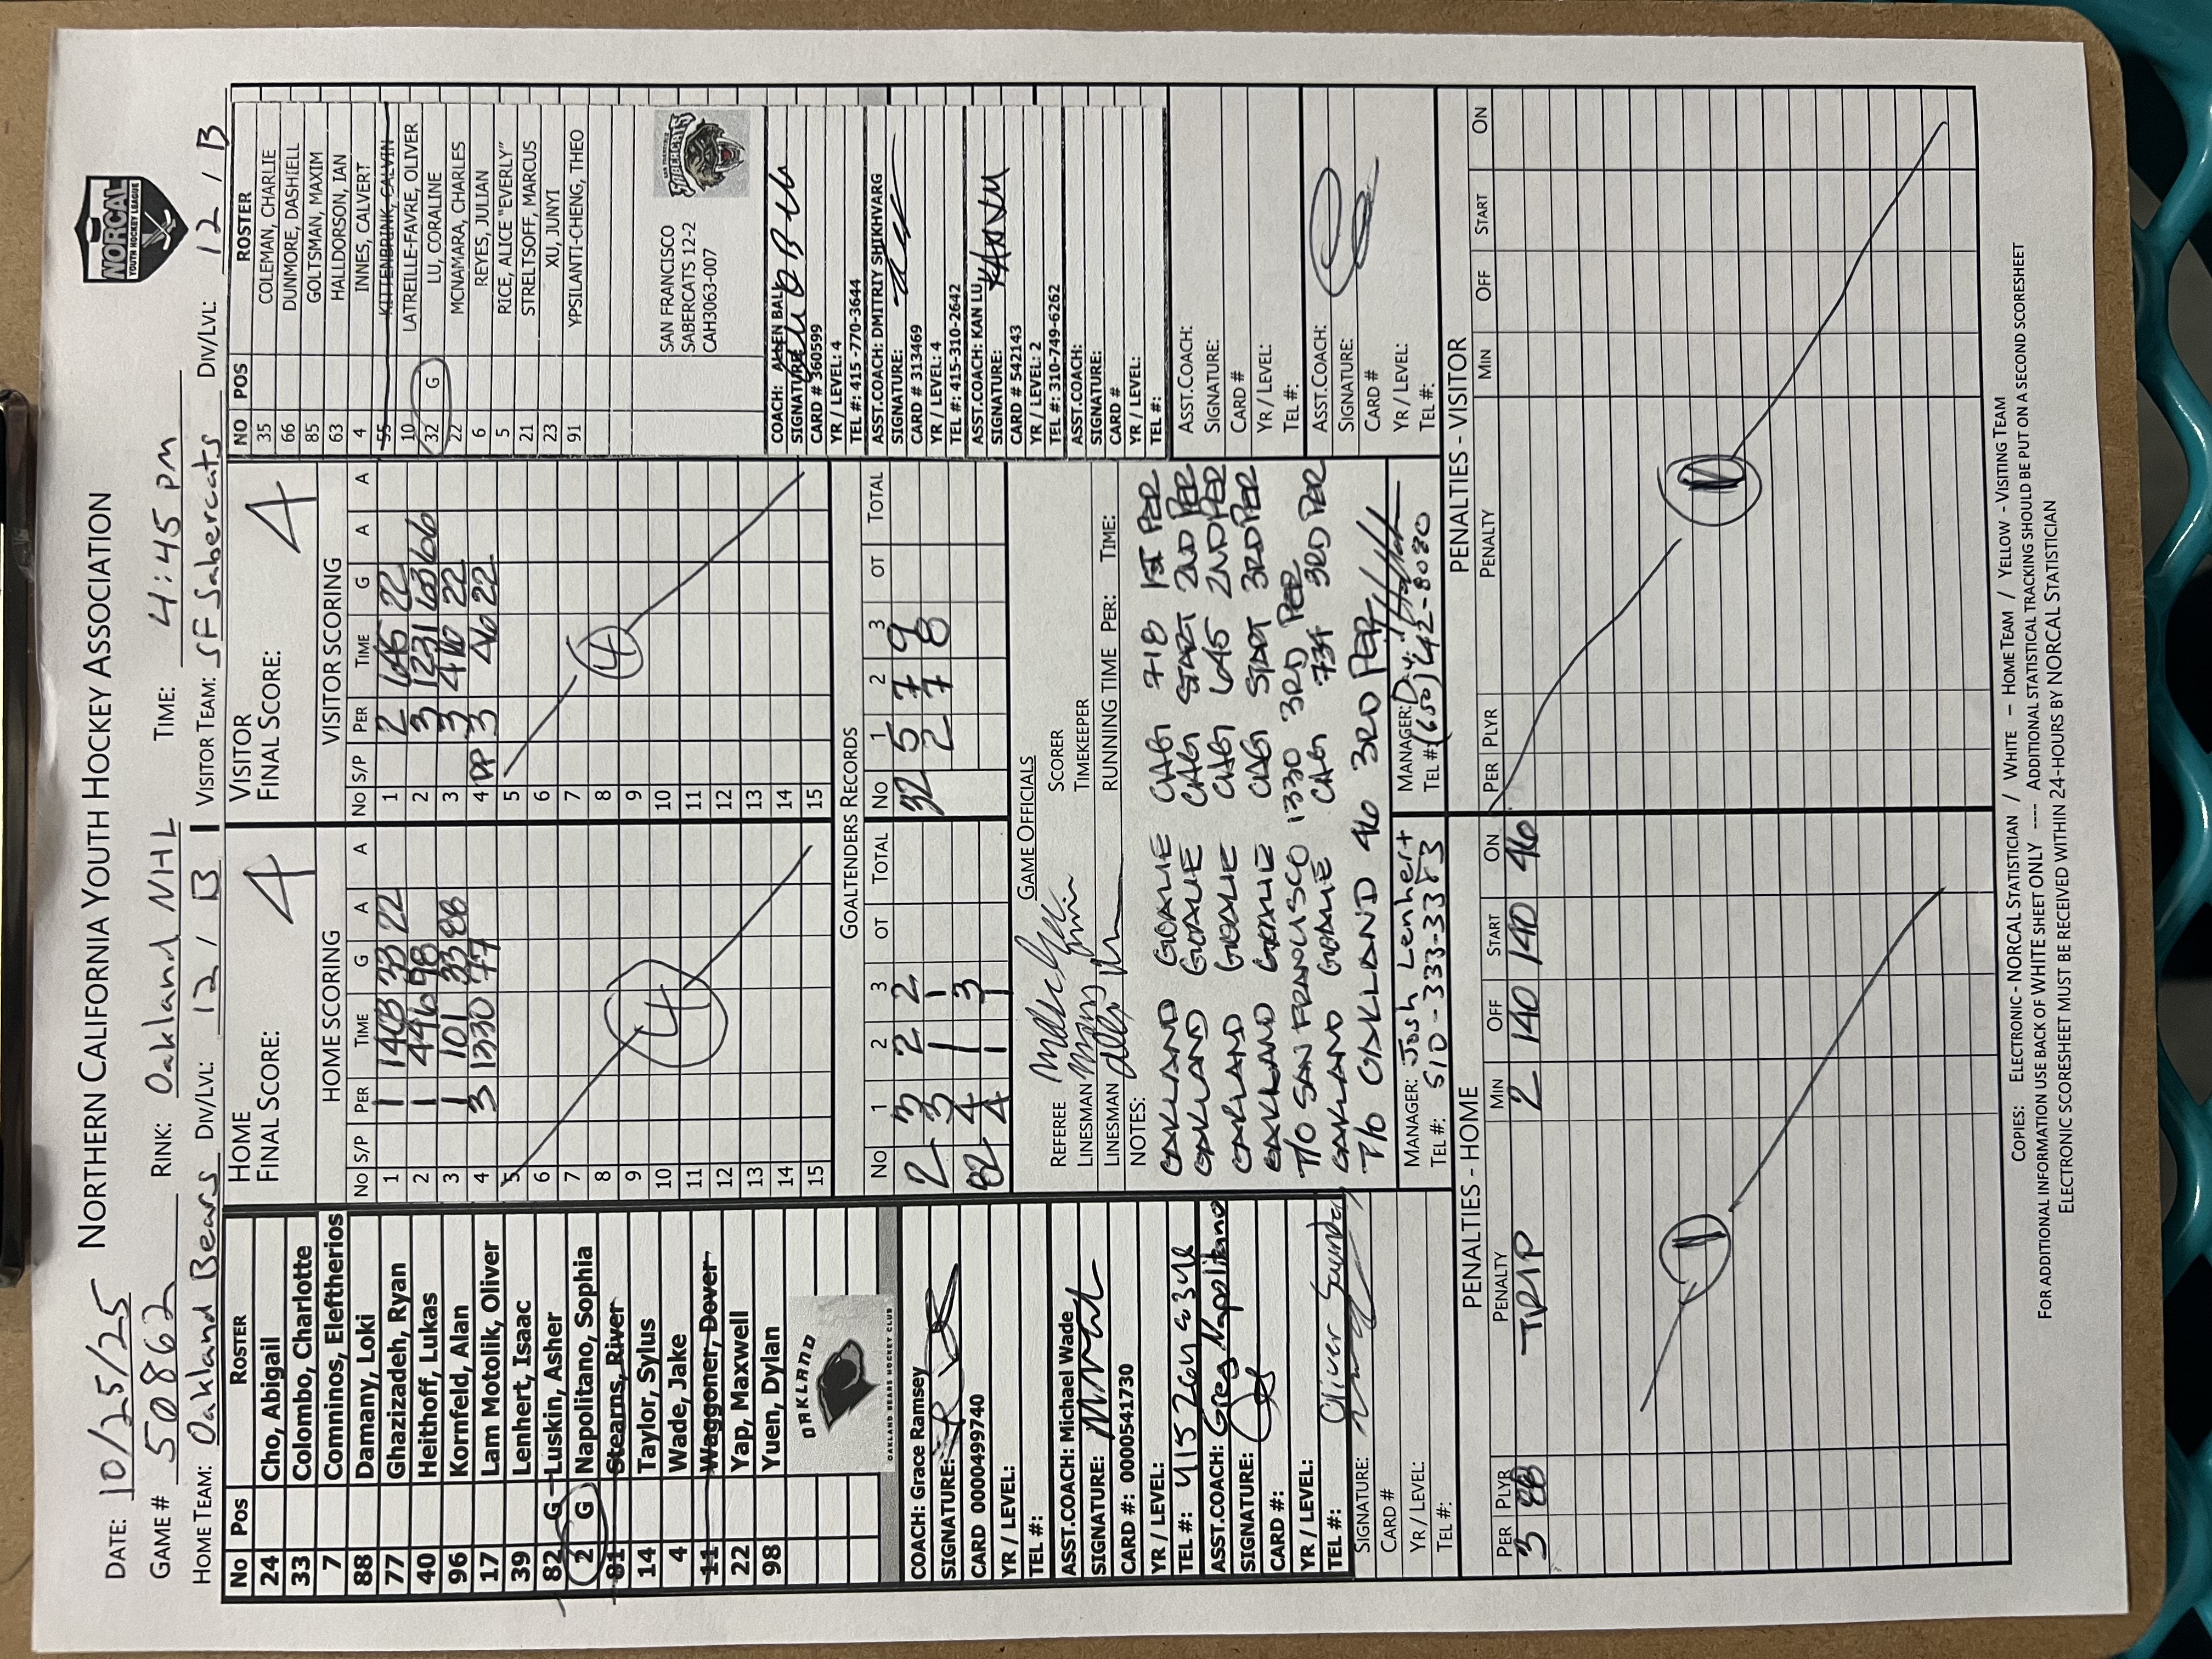 DATE: 10/25/25 NORTHERN CALIFORNIA YOUTH HOCKEY ASSOCIATION
NORCAL
YOUTH HOCKEY LEAGUE
GAME # 50862 RINK: Oakland NHL TIME: 4:45 pm
HOME TEAM: Oakland Bears DIV/LVL: 12 / B VISITOR TEAM: SF Sabercats DIV/LVL: 12 / B
No Pos ROSTER
24 Cho, Abigail
33 Colombo, Charlotte
7 Comninos, Eleftherios
88 Damany, Loki
77 Ghazizadeh, Ryan
40 Heithoff, Lukas
96 Kornfeld, Alan
17 Lam Motolik, Oliver
39 Lenhert, Isaac
82 G Luskin, Asher
2 G Napolitano, Sophia
81 Stearns, River
14 Taylor, Sylus
4 Wade, Jake
11 Waggoner, Dover
22 Yap, Maxwell
98 Yuen, Dylan
OAKLAND
OAKLAND BEARS HOCKEY CLUB
COACH: Grace Ramsey
SIGNATURE:
CARD 0000499740
YR / LEVEL:
TEL #:
ASST.COACH: Michael Wade
SIGNATURE:
CARD #: 0000541730
YR / LEVEL:
TEL #: 415 264 6346
ASST.COACH: Greg Napolitano
SIGNATURE:
CARD #:
YR / LEVEL:
TEL #: Oliver Saunders
SIGNATURE:
CARD #
YR / LEVEL:
TEL #:
HOME
FINAL SCORE: 4
HOME SCORING
No S/P PER TIME G A A
1 1 1403 33 22
2 1 446 98
3 1 101 33 88
4 3 1330 77
5
6
7
8 4
9
10
11
12
13
14
15
VISITOR
FINAL SCORE: 4
VISITOR SCORING
No S/P PER TIME G A A
1 2 645 22
2 3 1231 63 66
3 3 410 22
4 PP 3 46 22
5
6
7
8 4
9
10
11
12
13
14
15
GOALTENDERS RECORDS
No 1 2 3 OT TOTAL No 1 2 3 OT TOTAL
2 3 2 2 32 5 7 9
3 1 1 2 7 8
82 4 1 3
4 1 1
GAME OFFICIALS
REFEREE SCORER
LINESMAN TIMEKEEPER
LINESMAN RUNNING TIME PER: TIME:
NOTES:
OAKLAND GOALIE CHG 718 1ST PER
OAKLAND GOALIE CHG START 2ND PER
OAKLAND GOALIE CHG 645 2ND PER
OAKLAND GOALIE CHG START 3RD PER
T/O SAN FRANCISCO 1330 3RD PER
OAKLAND GOALIE CHG 734 3RD PER
T/O OAKLAND 46 3RD PER
MANAGER: Josh Lenhert MANAGER:
TEL #: 510-333-3383 TEL #: (650) 642-8080
NO POS ROSTER
35 COLEMAN, CHARLIE
66 DUNMORE, DASHIELL
85 GOLTSMAN, MAXIM
63 HALLDORSON, IAN
4 INNES, CALVERT
55 KITTENBRINK, CALVIN
10 LATREILLE-FAVRE, OLIVER
32 G LU, CORALINE
22 MCNAMARA, CHARLES
6 REYES, JULIAN
5 RICE, ALICE "EVERLY"
21 STRELTSOFF, MARCUS
23 XU, JUNYI
91 YPSILANTI-CHENG, THEO
SAN FRANCISCO
SABERCATS 12-2
CAH3063-007
SAN FRANCISCO
SABERCATS
COACH: ALLEN BALL
SIGNATURE
CARD # 360599
YR / LEVEL: 4
TEL #: 415 -770-3644
ASST.COACH: DMITRIY SHIKHVARG
SIGNATURE:
CARD # 313469
YR / LEVEL: 4
TEL #: 415-310-2642
ASST.COACH: KAN LU
SIGNATURE:
CARD # 542143
YR / LEVEL: 2
TEL #: 310-749-6262
ASST.COACH:
SIGNATURE:
CARD #
YR / LEVEL:
TEL #:
ASST.COACH:
SIGNATURE:
CARD #
YR / LEVEL:
TEL #:
ASST.COACH:
SIGNATURE:
CARD #
YR / LEVEL:
TEL #:
PENALTIES - HOME
PER PLYR PENALTY MIN OFF START ON
3 88 TRIP 2 140 140 46
1
PENALTIES - VISITOR
PER PLYR PENALTY MIN OFF START ON
COPIES: ELECTRONIC - NORCAL STATISTICIAN / WHITE – HOME TEAM / YELLOW - VISITING TEAM
FOR ADDITIONAL INFORMATION USE BACK OF WHITE SHEET ONLY ---- ADDITIONAL STATISTICAL TRACKING SHOULD BE PUT ON A SECOND SCORESHEET
ELECTRONIC SCORESHEET MUST BE RECEIVED WITHIN 24-HOURS BY NORCAL STATISTICIAN